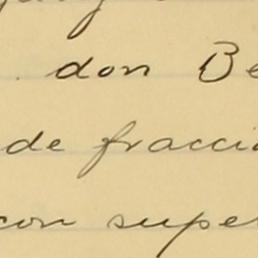 don Be
de fracci
con super